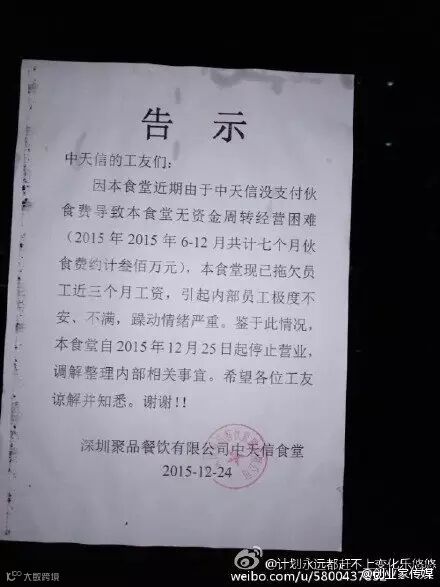 告 示
中天信的工友们：
因本食堂近期由于中天信没支付伙
食费导致本食堂无资金周转经营困难
（2015年2015年6-12月共计七个月伙
食费约计叁佰万元），本食堂现已拖欠员
工近三个月工资，引起内部员工极度不
安、不满，躁动情绪严重。鉴于此情况，
本食堂自2015年12月25日起停止营业，
调解整理内部相关事宜。希望各位工友
谅解并知悉。谢谢！！
深圳聚品餐饮有限公司中天信食堂
2015-12-24
@计划永远都赶不上变化乐悠悠
@创业家传媒
weibo.com/u/5800437
大数跨境